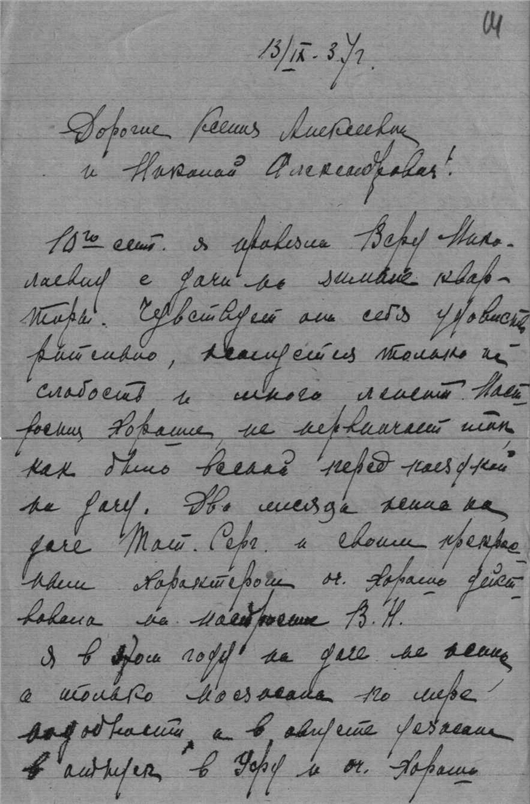 13/IX-37г.
Дорогие Ксения Алексеевна
и Николай Александрович!
10го сент. я провезла Веру Нико-
лаевну с дачи на зимние квар-
тиры. Чувствует она себя удовлетво
рительно, жалуется только на
слабость и много лежит. Наст-
роение хорошее, не нервничает так,
как было весной перед поездкой
на дачу. Два месяца жила на
даче Тат. Серг. и своим прекрас-
ным характером оч. хорошо дейст-
вовала на настроение В.Н.
Я в этом году на даче не жила,
а только наезжала по мере
надобности, а в августе уезжала
в отпуск в Уфу и оч. хорошо